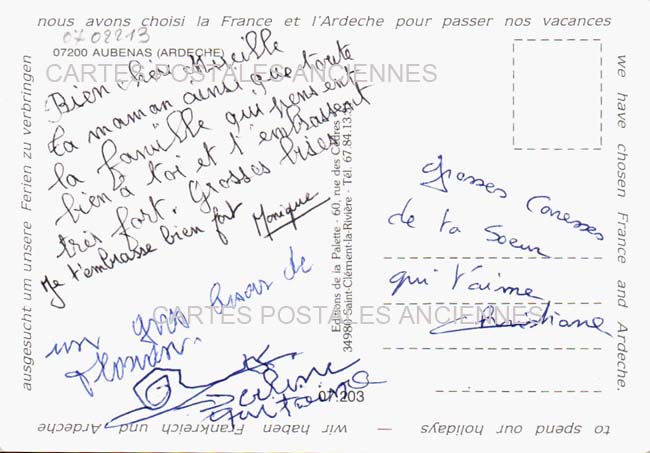 nous avons choisi la France et l'Ardeche pour passer nos vacances
0708213
07200 AUBENAS (ARDECHE)
CARTES POSTALES ANCIENNES
Bien chère Mireille
ta maman ainsi que toute
la famille qui pensent
bien à toi et t'embrassent
très fort. Grosses bises
Je t'embrasse bien fort Monique
un gros bisou de
Céline
07.203
Editions de la Palette - 60, rue des Cèdres
34980 Saint-Clément-la-Rivière - Tél. 67.84.13.
Grosses Caresses
de ta Soeur
qui t'aime
Christiane
CARTES POSTALES ANCIENNES
we have chosen France and Ardeche.
to spend our holidays
wir haben Frankreich und Ardeche
ausgesucht um unsere Ferien zu verbringen